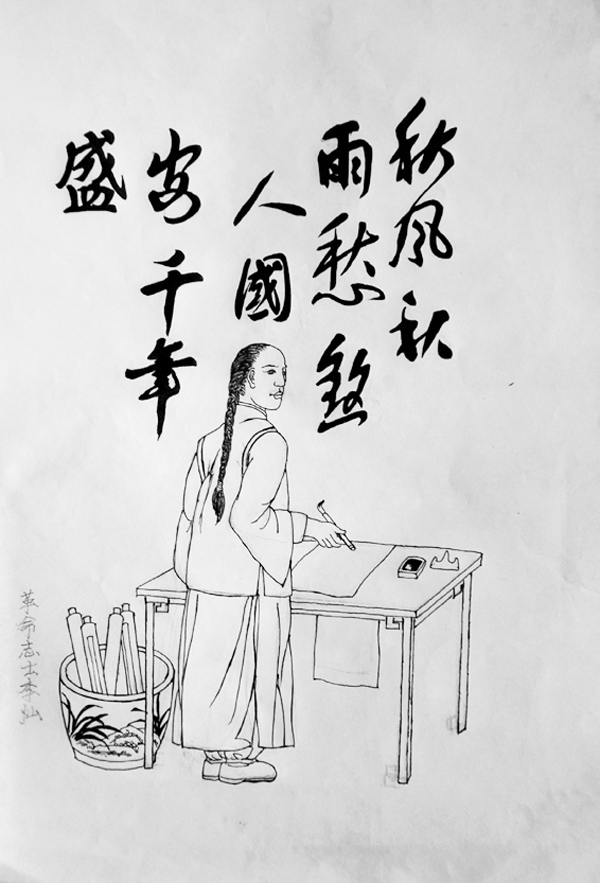 秋风秋
雨愁煞
人國
安千年
盛
革命志士李